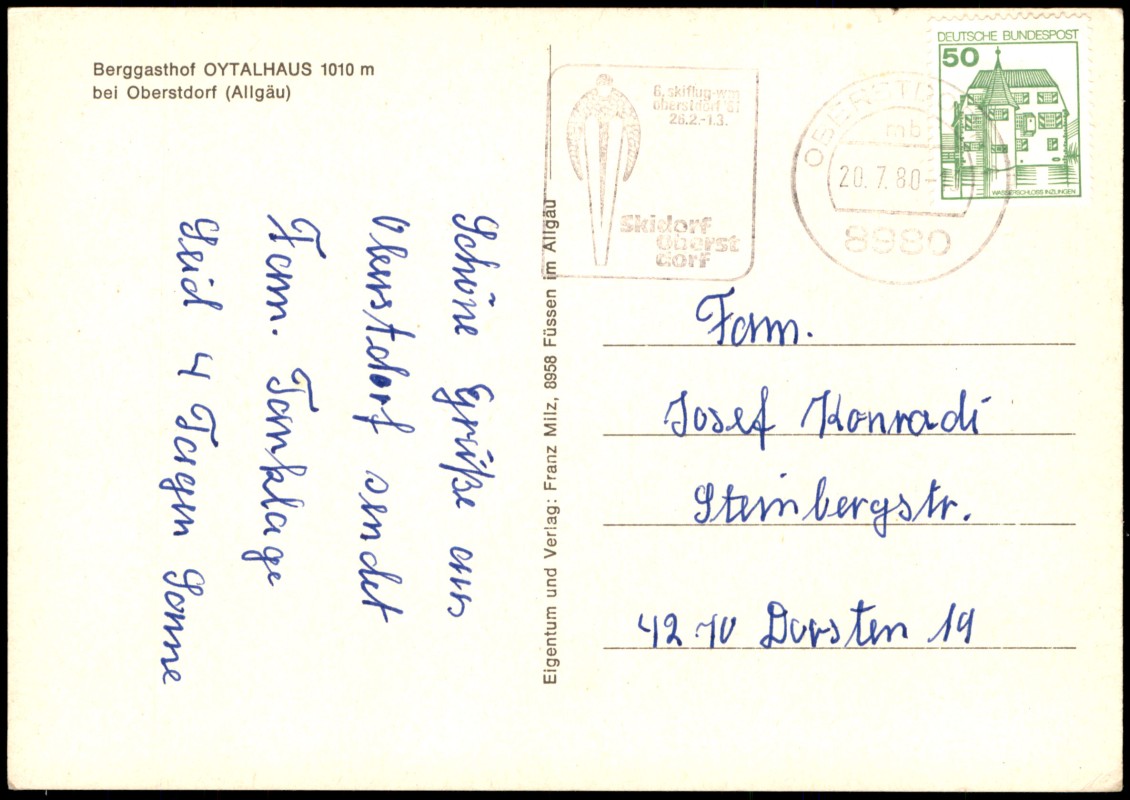 Berggasthof OYTALHAUS 1010 m
bei Oberstdorf (Allgäu)
Schöne Grüße aus
Oberstdorf sendet
Fam. Tanklage
Seid 4 Tagen Sonne
Eigentum und Verlag: Franz Milz, 8958 Füssen im Allgäu
6. skiflug-wm
oberstdorf '81
26.2.-1.3.
Skidorf
Oberst
dorf
OBERSTDO
mb
20.7.80-
8980
DEUTSCHE BUNDESPOST
50
WASSERSCHLOSS INZLINGEN
Fam.
Josef Konradi
Steinbergstr.
4270 Dorsten 19